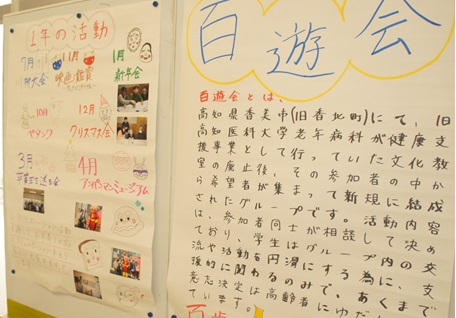 1年の活動
7月
11月
映画鑑賞
1月
新年会
10月
12月
クリスマス会
3月
4月
アンパンマンミュージアム
百遊会
百遊会とは、
高知県香美市(旧香北町)にて、旧
高知医科大学老年病科が健康支
援事業として行っていた文化教
室の廃止後、その参加者の中か
ら希望者が集まって新規に結成
されたグループです。活動内容
は、参加者同士が相談して決め
ており、学生はグループ内の交
流や活動を円滑にする為に支
援的に関わるのみで、あくまで
意志決定は高齢者にゆだ
ています。